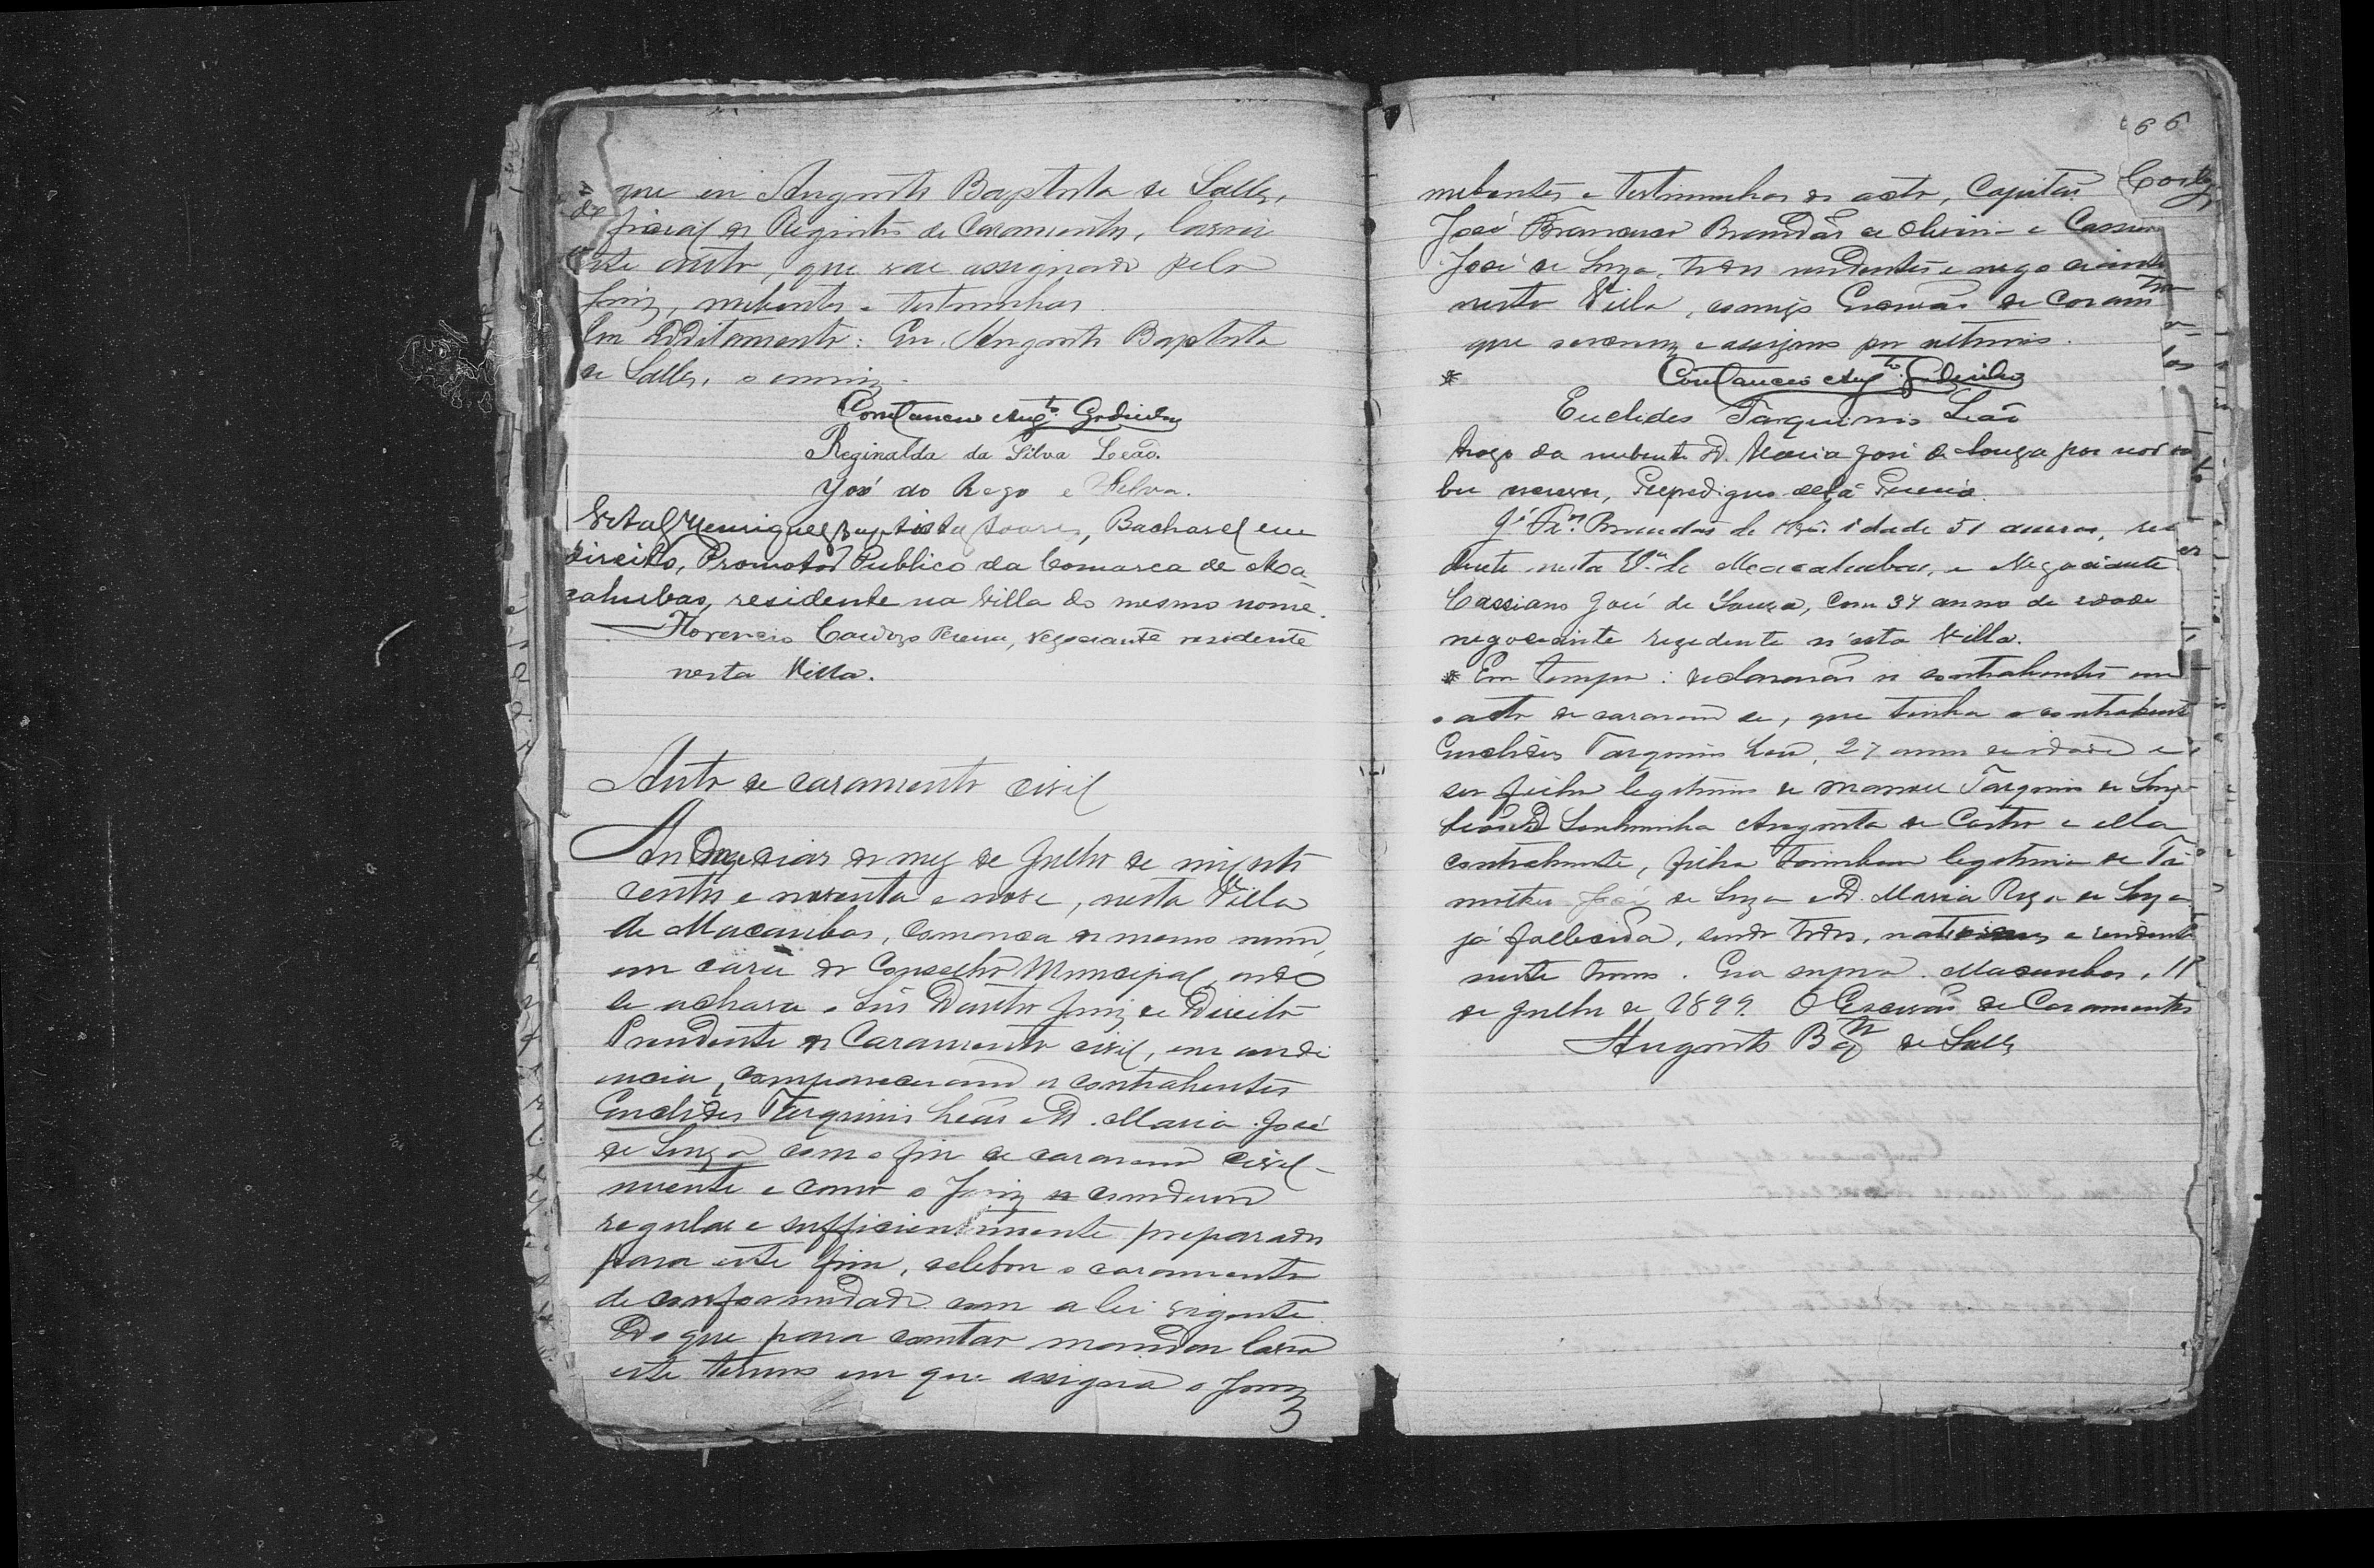 que eu Augusto Baptista de Salles,
ficial do Registro de Casamentos, lavrei
este auto, que vae assignado pelo
Juiz, nubentes e testemunhas.
Em additamento: Eu Augusto Baptista
de Salles, o escrevi.
Constancio Augto. Godinho
Reginalda da Silva Leão.
José do Rego e Silva.
Vital Henrique Baptista Soares, Bacharel em
Direito, Promotor Publico da Comarca de Ma-
cahubas, residente na Villa do mesmo nome.
Florencio Cardozo Pereira, negociante residente
nesta Villa.
Auto de casamento civil
Aos Onze dias do mez de Julho de mil oito
centos e noventa e nove, nesta Villa
de Macaubas, Comarca do mesmo nome,
em casa do Conselho Municipal, onde
se achava o Snr Doutor Juiz de Direito
Presidente do Casamento civil, em audi
encia, compareceram os contrahentes
Euclides Tarquinio Leão e D. Maria José
de Souza com o fim de casarem civil-
mente e como o Juiz os considerou
regular e sufficientemente preparados
para este fim, celebou o casamento
de conformidade com a lei vigente.
Do que para constar mandou lavrar
este termo em que assigna o Juiz
66
nubentes e testemunhas do acto, Capitão
José Francisco Brandão de Oliveira e Cassiano
José de Souza, todos residentes e negociantes
nesta Villa, comigo Escrivão de Casam
que escrevi e assigno por ultimo.
* Constancio Augto. Godinho
Euclides Tarquinio Leão
Arogo da nubente D. Maria José de Souza por não sa
ber escrever,
Je. Fro. Brandão de Olivra. idade 51 annos, resi
dente nesta Va. de Macahubas, e Negociante
Cassiano José de Souza, com 34 annos de idade
negociante rezedente n'esta Villa.
* Em tempo: declararão os contrahentes em
o acto de casarem se, que tinha o contrahente
Euclides Tarquinio Leão, 27 annos de idade e
ser filho legitimo de Manoel Tarquinio de Souza
Leão e D. Senhorinha Augusta de Castro e ella
contrahente, filha tambem legitima de Ti
motheo José de Souza e D. Maria Roza de Souza
já fallecida, sendo todos, naturaes e residentes
neste termo. Era supra. Macaubas, 11
de Julho de 1899. O Escrivão de Casamentos
Augusto Bapta. de Salles